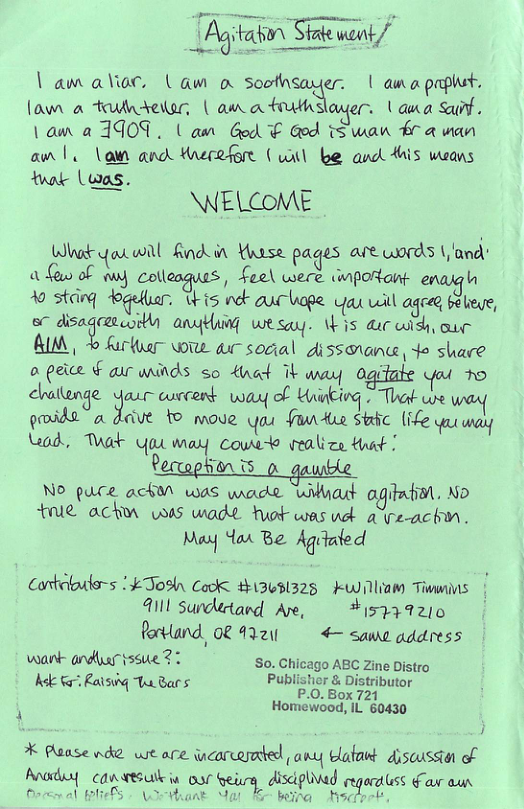 Agitation Statement
I am a liar. I am a soothsayer. I am a prophet.
I am a truth teller. I am a truthslayer. I am a saint.
I am a 3909. I am God if God is man for a man
am I. I am and therefore I will be and this means
that I was.
WELCOME
What you will find in these pages are words I, 'and'
a few of my colleagues, feel were important enough
to string together. It is not our hope you will agree, believe,
or disagree with anything we say. It is our wish, our
AIM, to further voice our social dissonance, to share
a peice of our minds so that it may agitate you to
challenge your current way of thinking. That we may
provide a drive to move you from the static life you may
lead. That you may come to realize that:
Perception is a gamble
No pure action was made without agitation. No
true action was made that was not a re-action.
May You Be Agitated
Contributors: * Josh Cook #13681328 * William Timmins
9111 Sunderland Ave, #15779210
Portland, OR 97211 ← same address
want another issue?:
Ask For: Raising The Bars
So. Chicago ABC Zine Distro
Publisher & Distributor
P.O. Box 721
Homewood, IL 60430
* Please note we are incarcerated, any blatant discussion of
Anarchy can result in our being disciplined regardless of our own
personal beliefs. We thank you for being discreet.